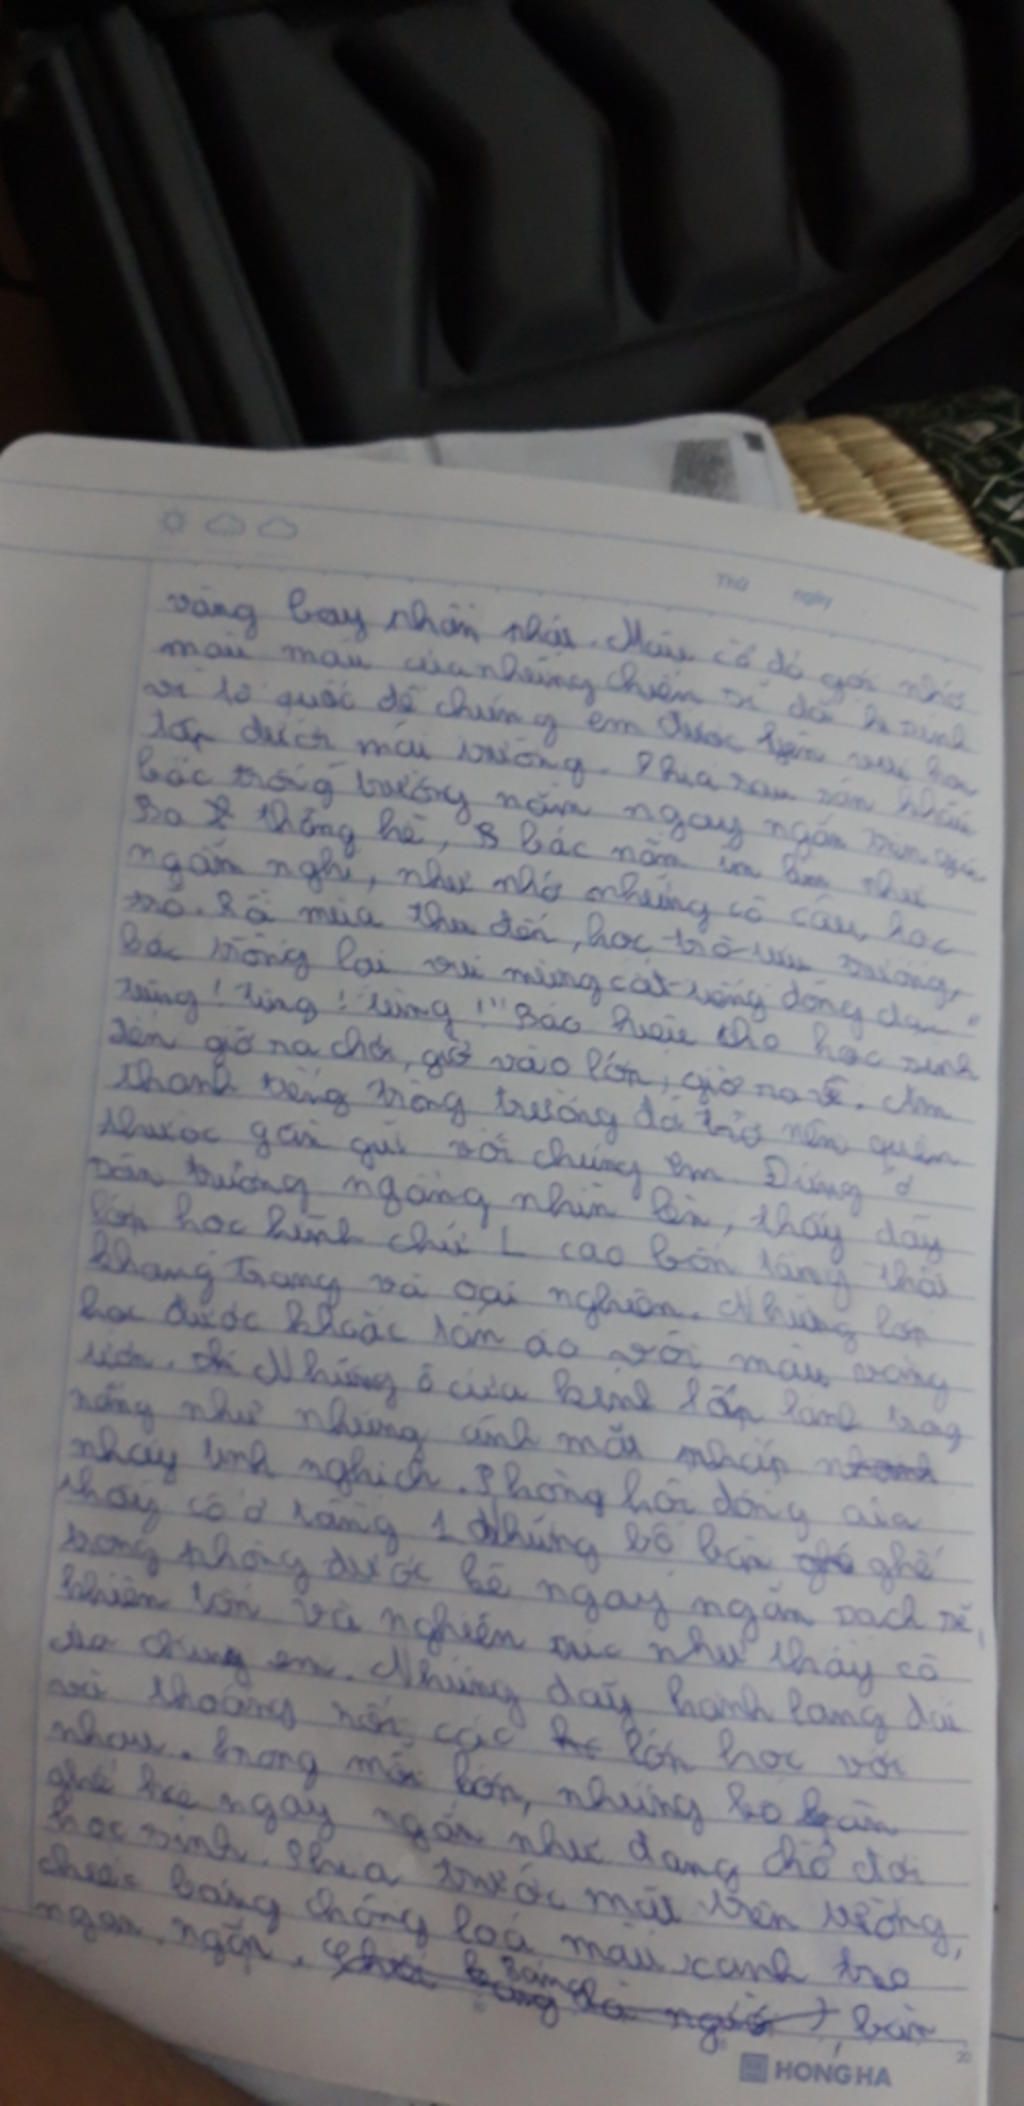 Thứ ngày
vàng bay phấp phới. Màu cờ đỏ gợi nhớ
màu máu của những chiến sĩ đã hi sinh
vì tổ quốc để chúng em được
dưới mái trường. Phía sau sân khấu
bác trống trường nằm ngay ngắn trên
Ba tháng hè, bác nằm im lìm như
ngẫm nghĩ, như nhớ những cô cậu học
trò. Rồi mùa thu đến, học trò tựu trường,
bác trống lại vui mừng cất tiếng dõng dạc "
tùng! tùng! tùng!" Báo hiệu cho học sinh
đến giờ ra chơi, giờ vào lớp, giờ ra về. Âm
thanh tiếng trống trường đã trở nên quen
thuộc gần gũi với chúng em. Đứng ở
sân trường ngẩng nhìn lên, thấy dãy
lớp học hình chữ L cao bốn tầng thật
khang trang và oai nghiêm. Những lớp
học được khoác tấm áo với màu vàng
tươi. Những ô cửa kính lấp lánh trong
nắng như những ánh mắt nhấp
nháy tinh nghịch. Phòng hội đồng của
thầy cô ở tầng 1. Những bộ bàn ghế
trong phòng được kê ngay ngắn sạch sẽ,
khiêm tốn và nghiêm túc như thầy cô
của chúng em. Những dãy hành lang dài
và thoáng nối các lớp học với
nhau. Trong mỗi lớp, những bộ bàn
ghế kê ngay ngắn như đang chờ đợi
học sinh. Phía trước mặt trên tường,
chiếc bảng chống loá màu xanh treo
ngay ngắn. bàn
HONG HA
20